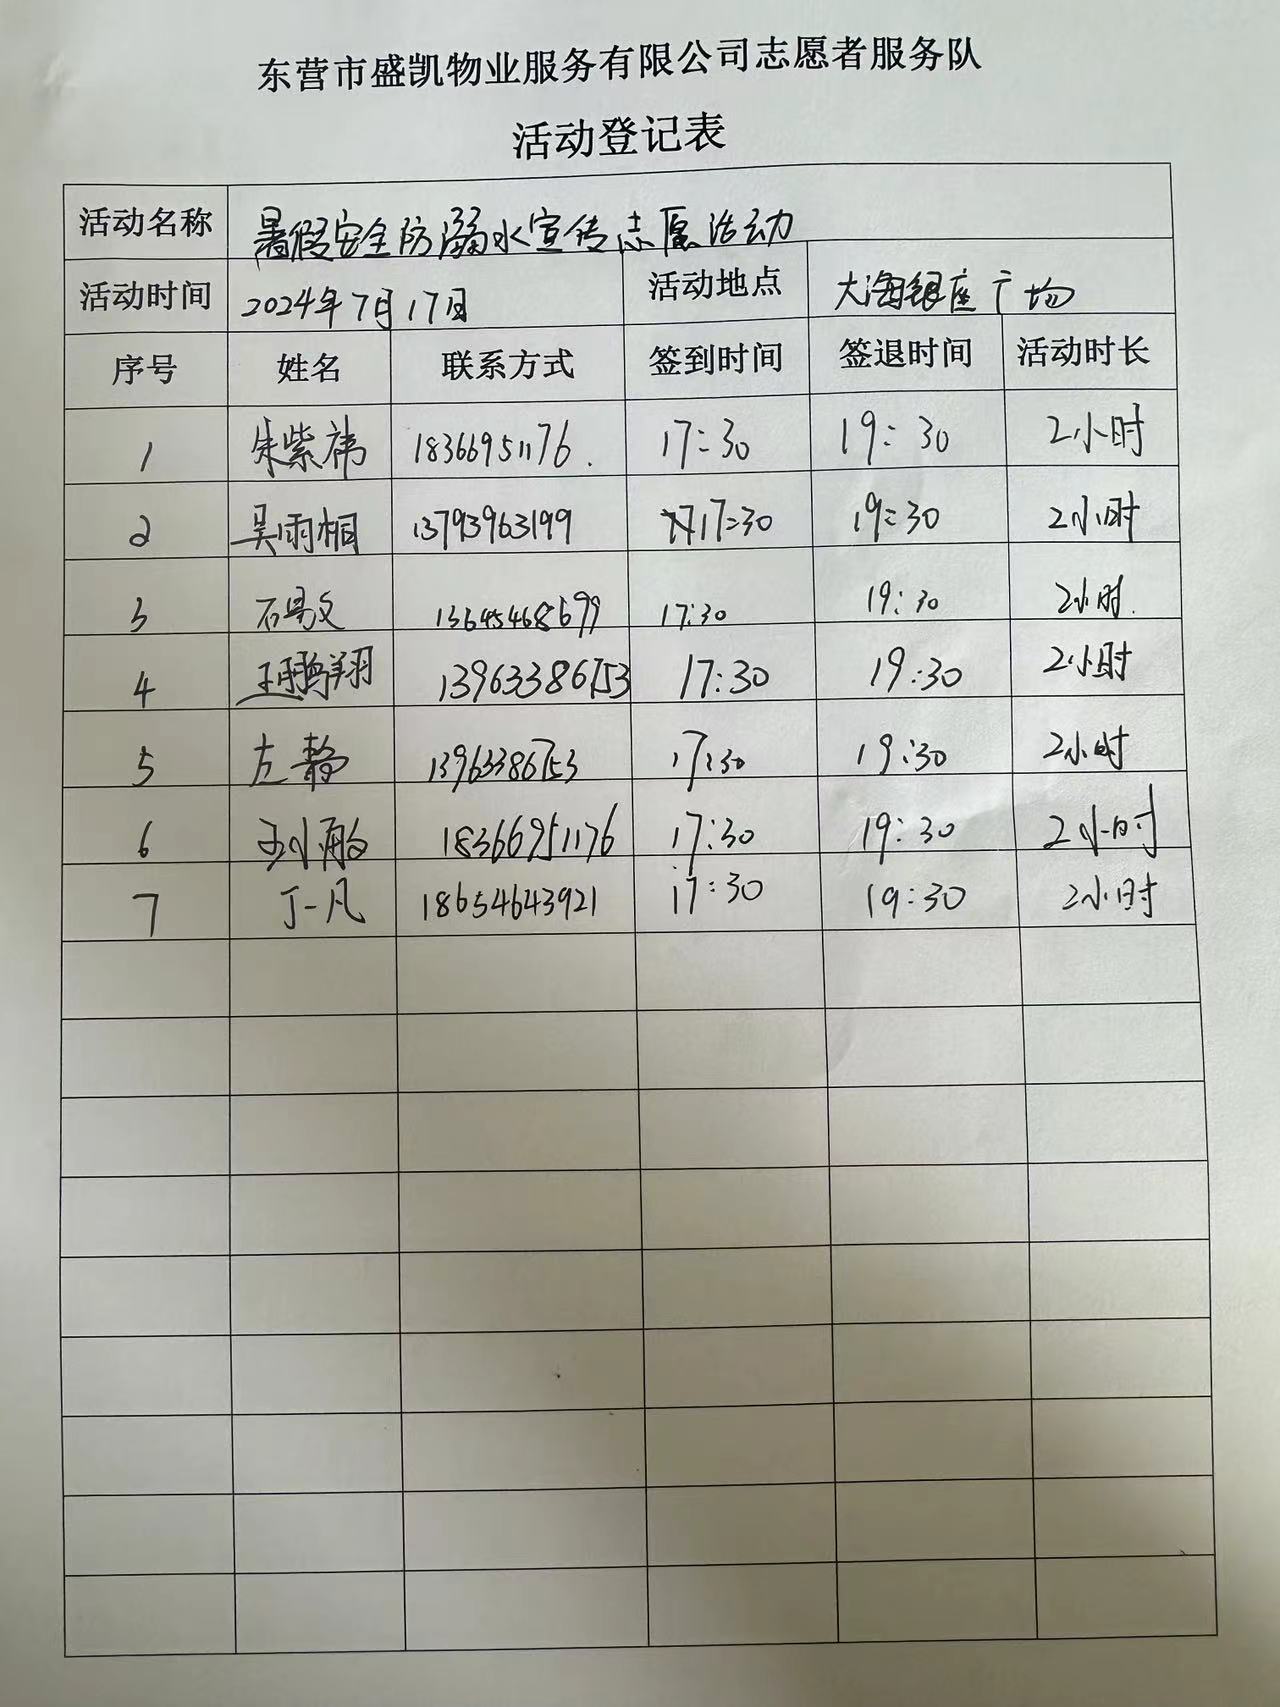 东营市盛凯物业服务有限公司志愿者服务队
活动登记表
活动名称 暑假安全防溺水宣传志愿活动
活动时间 2024年7月17日 活动地点 大海银座广场
序号 姓名 联系方式 签到时间 签退时间 活动时长
1 朱紫祎 18366951176. 17:30 19:30 2小时
2 吴雨桐 13793963199 17:30 19:30 2小时
3 石 文 13645468699 17:30 19:30 2小时.
4 王鹏翔 13963386753 17:30 19:30 2小时
5 左静 13963386753 17:30 19:30 2小时
6 18366951176 17:30 19:30 2小时
7 丁一凡 18654643921 17:30 19:30 2小时